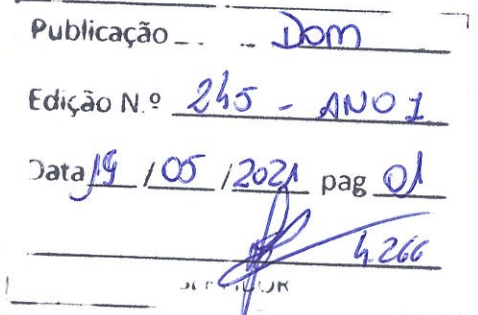 Publicação DOM
Edição N.º 245 - ANO 1
Data 19 / 05 / 2021 pag 01
4.266